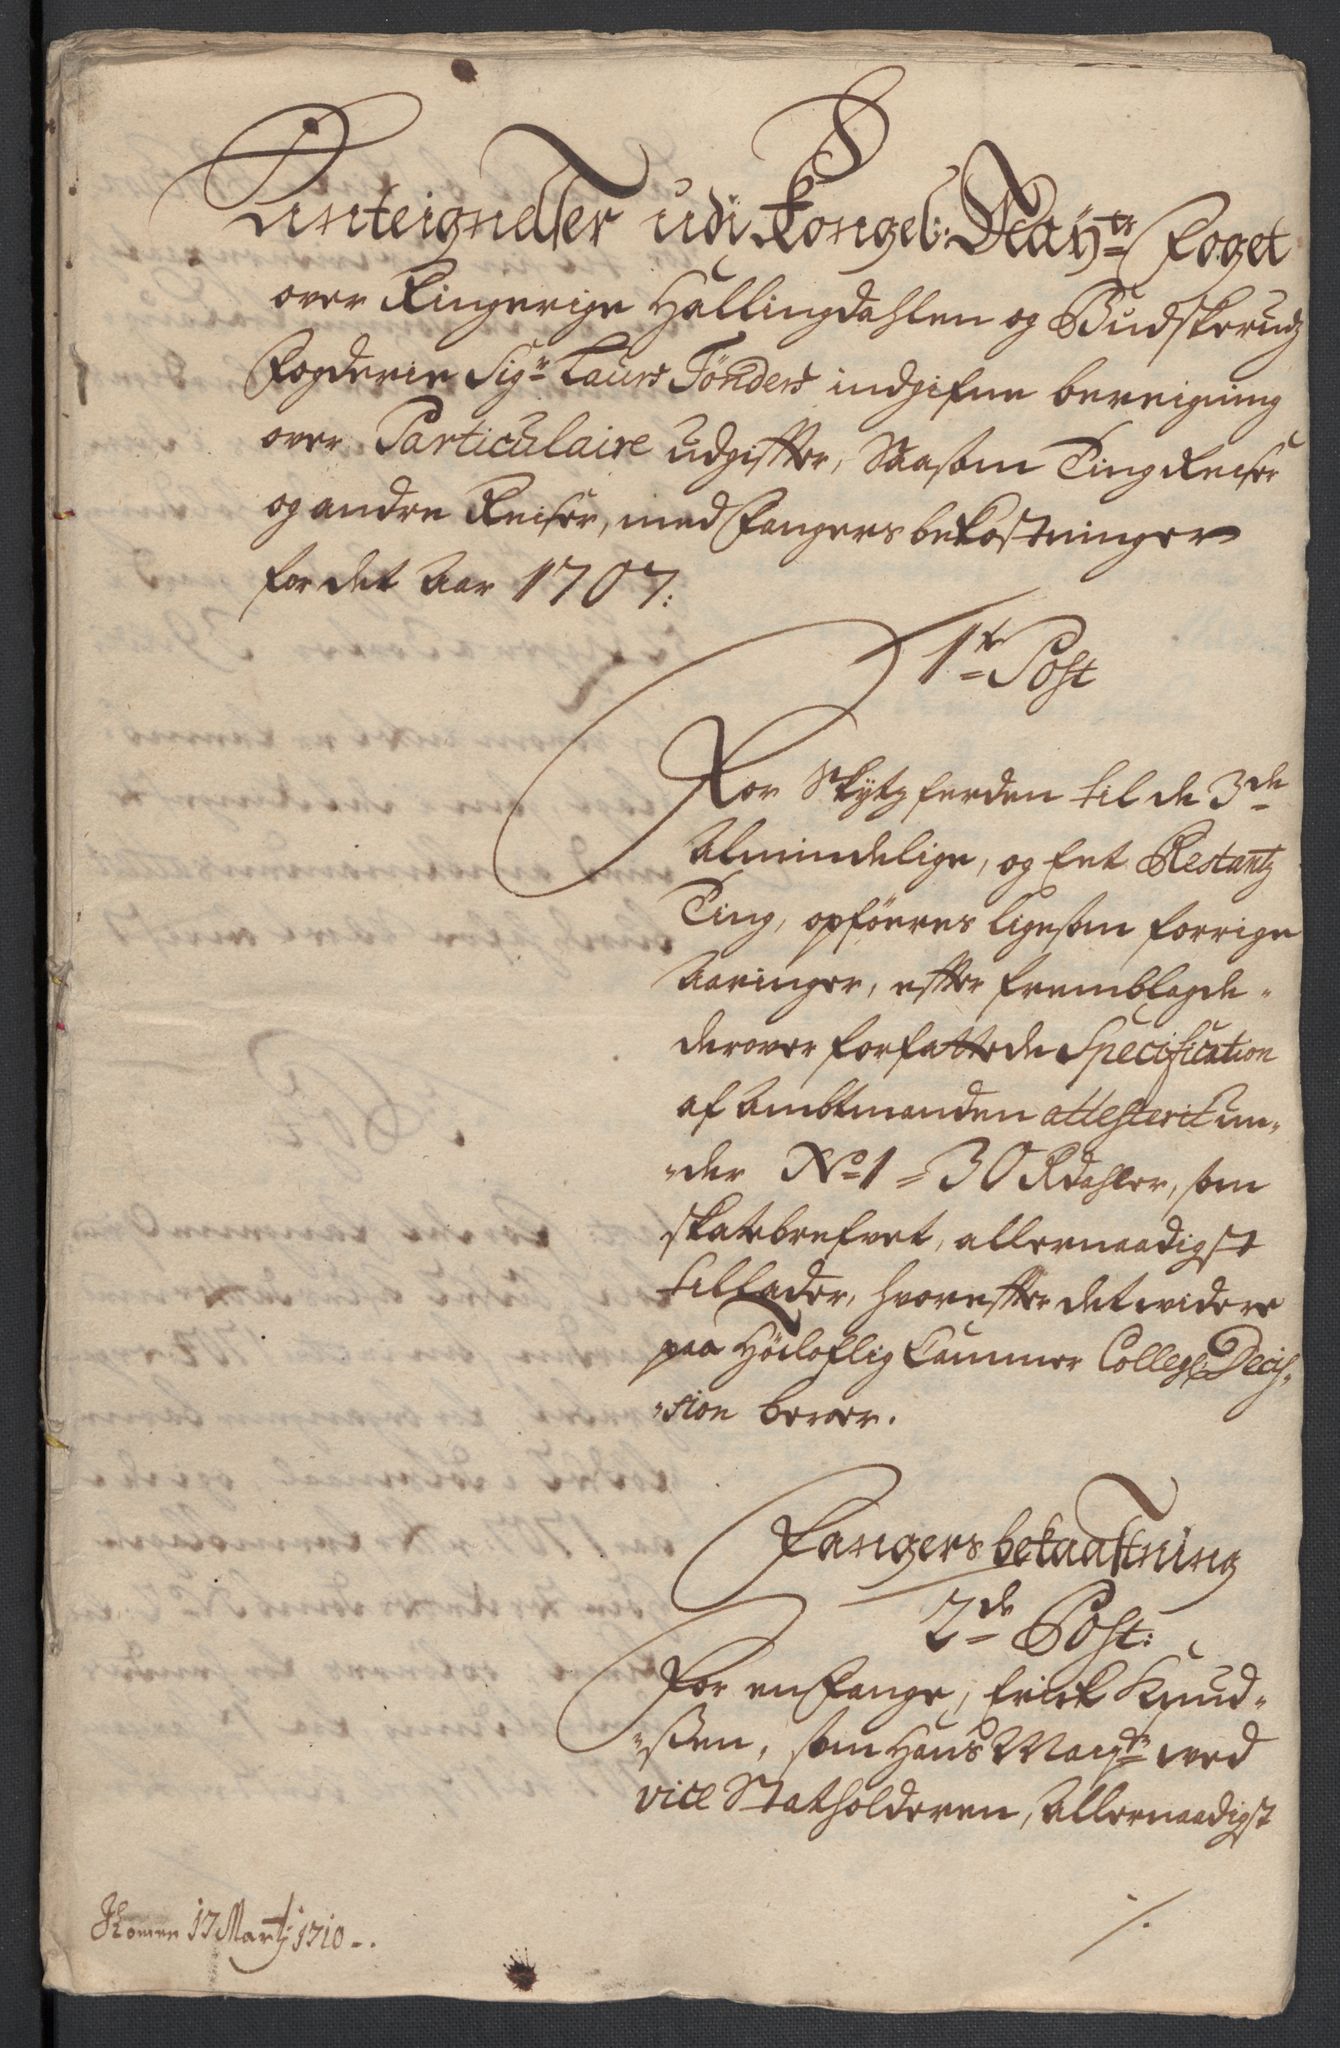 Anteignelser udj Kongel: Mayts Foget
over Ringerige Hallingdahlen og Budskeruds
Fogderie Sigr Laurs Tønders indgifne bereigning
over Particulaire udgiffter, Saasom Ting Reiser
og andre Reiser, med Fangers bekostninger
for det Aar 1707:
1te Post
For Skytzferden til de 3de
Almindelige, og Eet Restantz
Ting, opføeres ligesom forrige
Aaringer, effter fremblagde
derover forfattede Specification
af Ambtmanden attesterit un-
-der No 1 - 30 Rdahler, som
skatebrefvet, allernaadigst
tillader, hvoreffter det widere
paa Høiloflig Cammer Collegij Decis-
-sion beroer.
Fangers bekaastning
2de Post:
For en Fange, Erick Knud-
-ssen, som Hans Mayts wed
vice Statholderen, Allernaadigst
./.
Komen 17 Martj 1710..